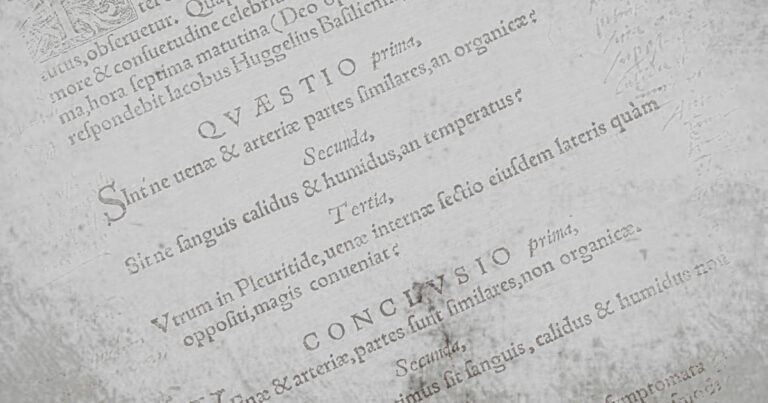 tutus, obseruetur. Qua
more & consuetudine celebri
ma, hora septima matutina (Deo op
respondebit Iacobus Huggelius Basilien
QVÆSTIO prima,
SInt ne uenæ & arteriæ partes similares, an organicæ?
Secunda,
Sit ne sanguis calidus & humidus, an temperatus?
Tertia,
Vtrum in Pleuritide, uenæ internæ sectio eiusdem lateris quàm
oppositi, magis conueniat?
CONCLVSIO prima,
enæ & arteriæ, partes sunt similares, non organicæ.
Secunda,
imus sit sanguis, calidus & humidus non
symptomata